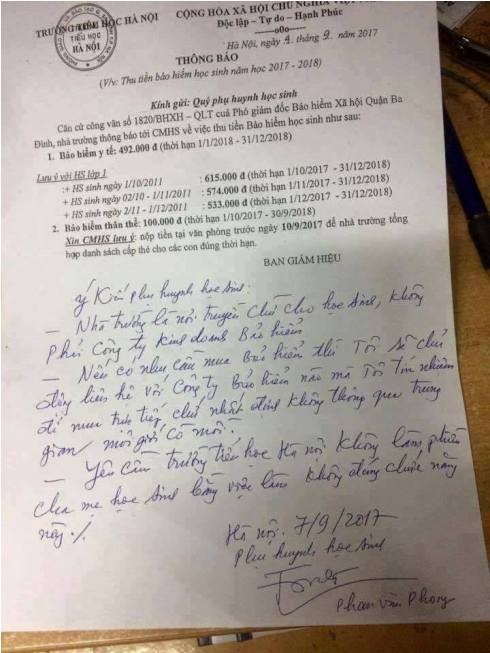 TRƯỜNG TIỂU HỌC HÀ NỘI
CỘNG HÒA XÃ HỘI CHỦ NGHĨA VIỆT
Độc lập – Tự do – Hạnh Phúc
---o0o---
TIỂU HỌC
HÀ NỘI
Hà Nội, ngày 4 tháng 9 năm 2017
THÔNG BÁO
(V/v: Thu tiền bảo hiểm học sinh năm học 2017 - 2018)
Kính gửi: Quý phụ huynh học sinh
Căn cứ công văn số 1820/BHXH – QLT của Phó giám đốc Bảo hiểm Xã hội Quận Ba
Đình, nhà trường thông báo tới CMHS về việc thu tiền Bảo hiểm học sinh như sau:
1. Bảo hiểm y tế: 492.000 đ (thời hạn 1/1/2018 - 31/12/2018)
Lưu ý với HS lớp 1
:+ HS sinh ngày 1/10/2011 : 615.000 đ (thời hạn 1/10/2017 - 31/12/2018)
+ HS sinh ngày 02/10 - 1/11/2011 : 574.000 đ (thời hạn 1/11/2017 - 31/12/2018)
+ HS sinh ngày 2/11 - 1/12/2011 : 533.000 đ (thời hạn 1/12/2017 - 31/12/2018)
2. Bảo hiểm thân thể: 100.000 đ (thời hạn 1/10/2017 - 30/9/2018)
Xin CMHS lưu ý: nộp tiền tại văn phòng trước ngày 10/9/2017 để nhà trường tổng
hợp danh sách cấp thẻ cho các con đúng thời hạn.
BAN GIÁM HIỆU
Ý Kiến phụ huynh học sinh:
– Nhà trường là nơi truyền chữ cho học sinh, không
phải công ty kinh doanh Bảo hiểm
– Nếu có nhu cầu mua bảo hiểm thì Tôi sẽ chủ
động liên hệ với Công ty Bảo hiểm nào mà Tôi tín nhiệm
để mua trực tiếp chứ nhất định không thông qua trung
gian môi giới cò mồi.
– Yêu cầu trường tiểu học Hà nội không làm phiền
cha mẹ học sinh bằng việc làm không đúng chức năng
này./.
Hà nội. 7/9/2017
Phụ huynh học sinh
Phan văn Phong